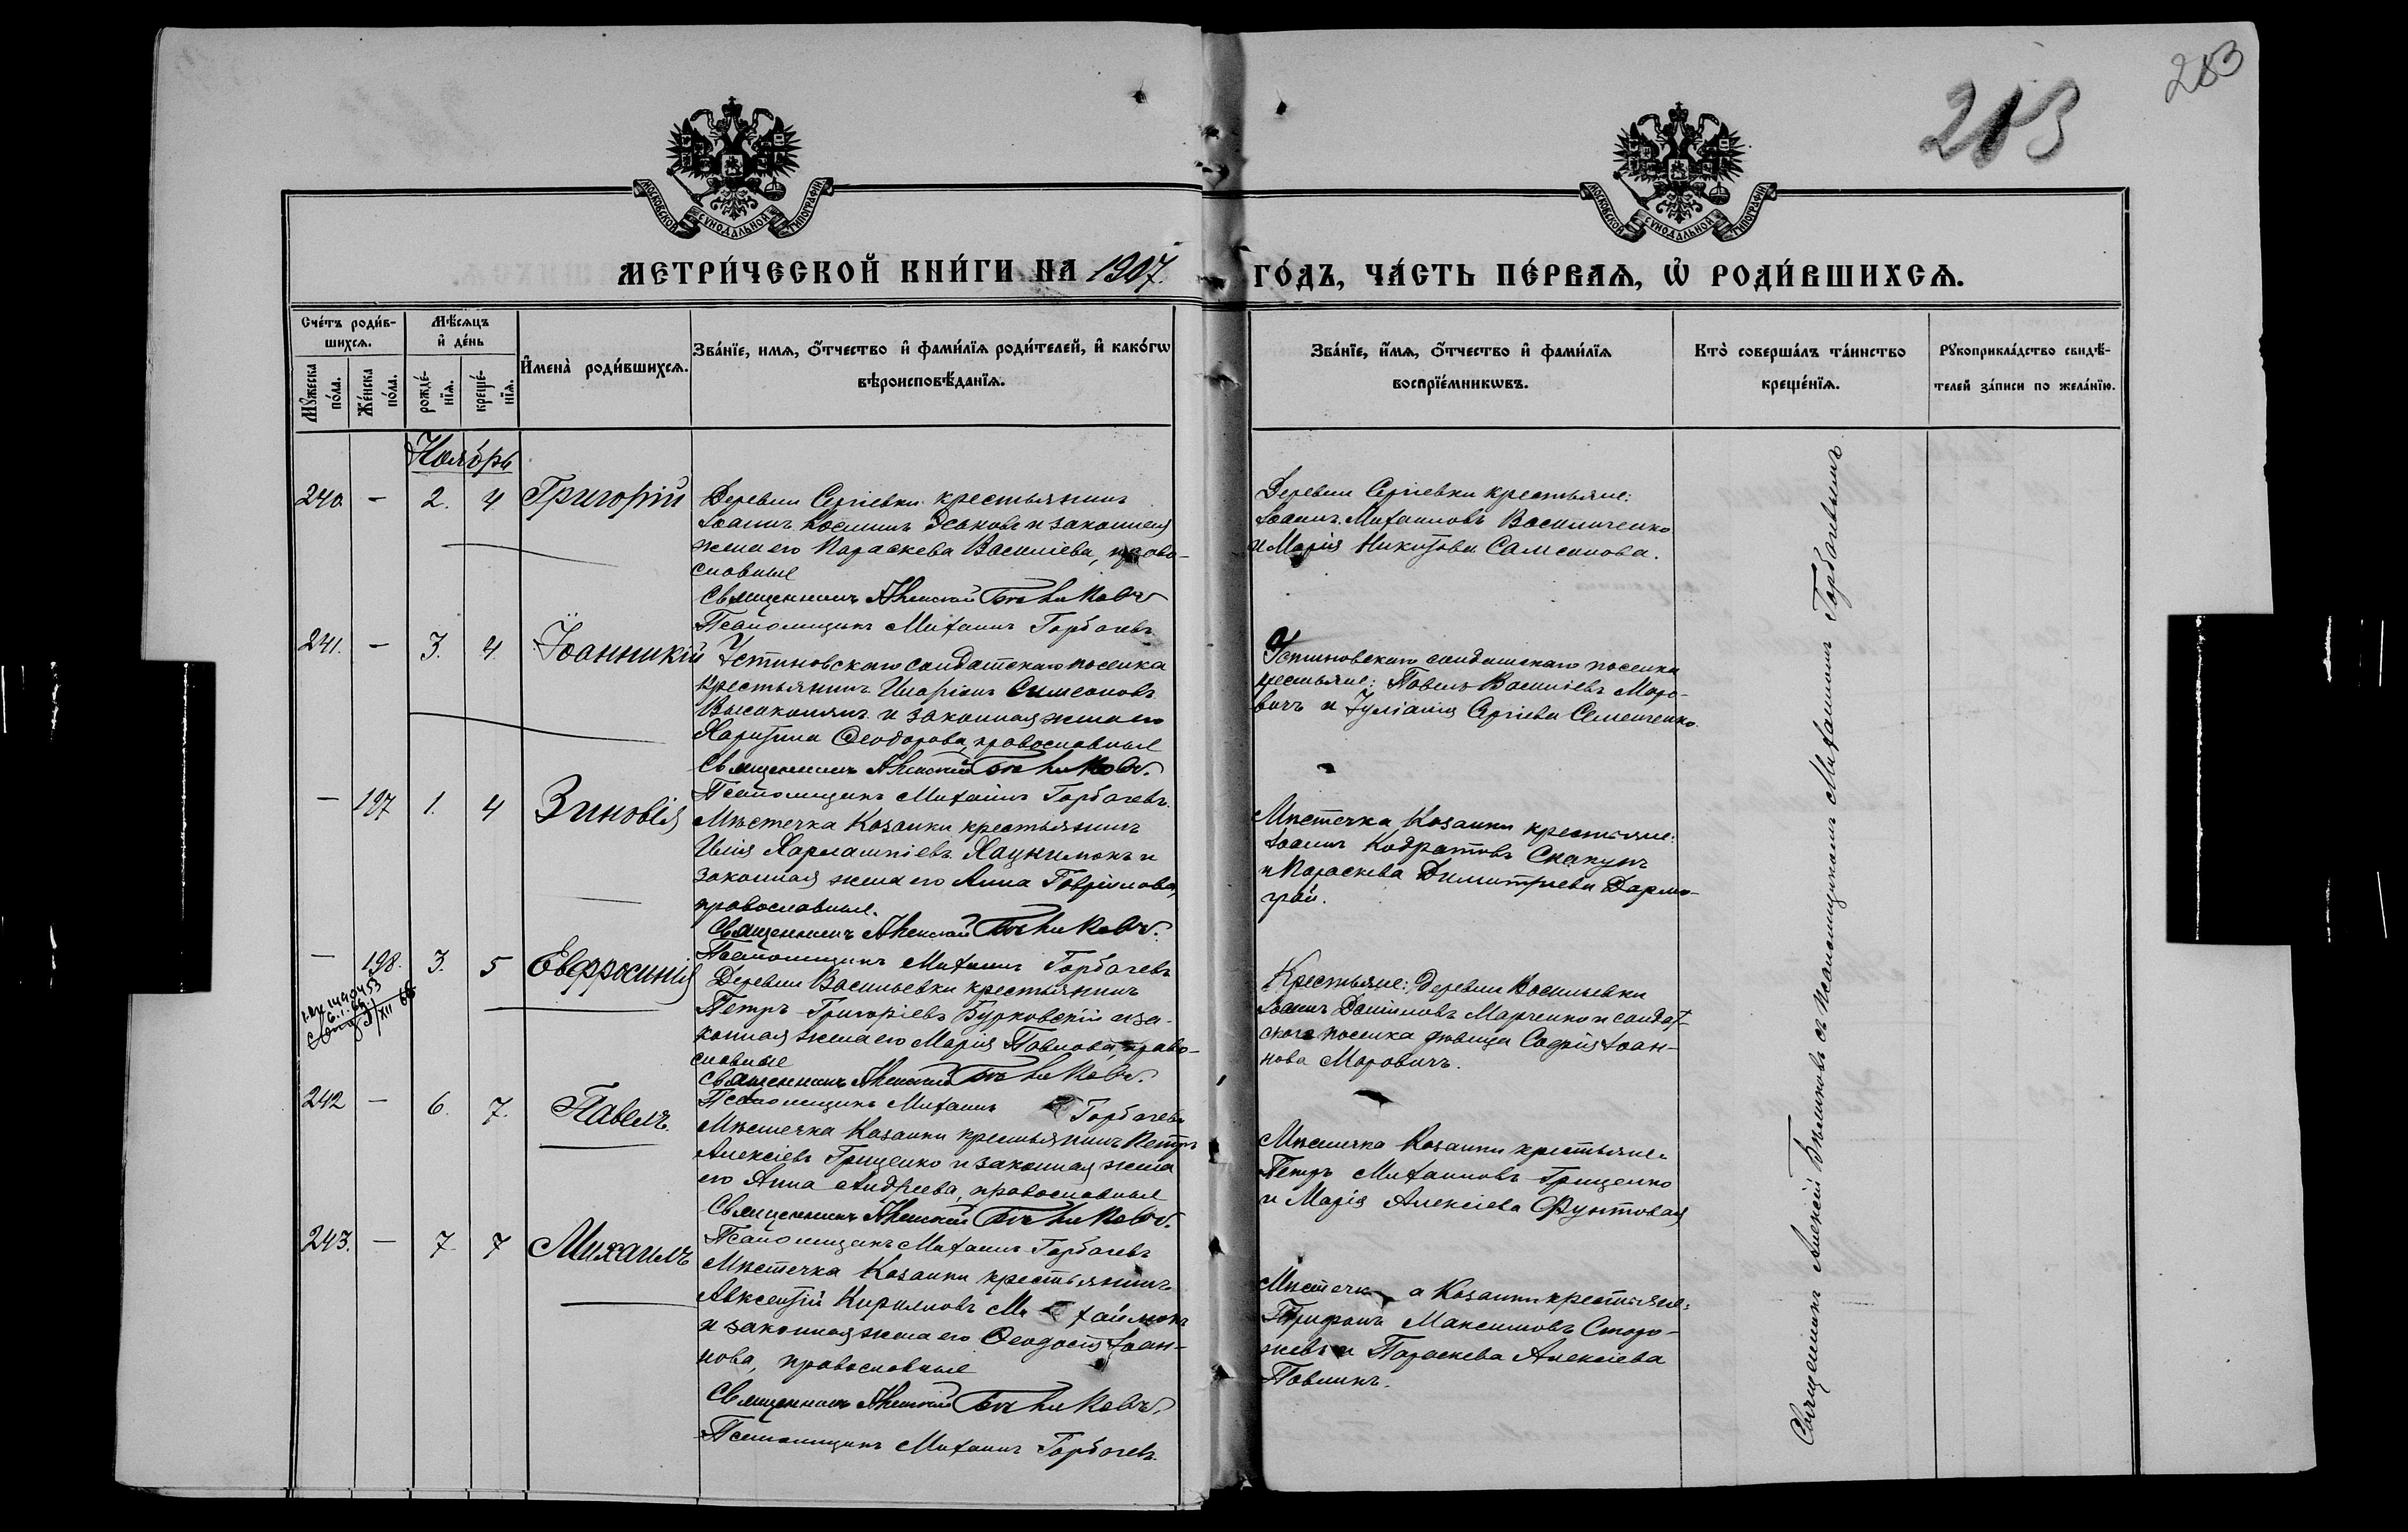 283
213
МОСКОВСКОЙ СѴНОДАЛЬНОЙ ТИПОГРАФІИ
МОСКОВСКОЙ СѴНОДАЛЬНОЙ ТИПОГРАФІИ
МЕТРИ́ЧЕСКОЙ КНИ́ГИ НА 1907.
ГО́ДЪ, ЧА́СТЬ ПЕ́РВАѦ, Ѽ РОДИ́ВШИХСѦ.
Сче́тъ роди́в-
шихсѧ.
Мѣ́сѧцъ
и҆ де́нь
Мꙋ́жеска
по́ла.
Же́нска
по́ла.
рожде́-
нїѧ.
креще́-
нїѧ.
И҆мена̀ роди́вшихсѧ.
Зва́нїе, имѧ, ѻ҆́тчество и҆ фами́лїѧ роди́телей, и҆ како́гѡ
вѣроисповѣ́данїѧ.
Зва́нїе, и҆́мѧ, ѻ҆́тчество и҆ фами́лїѧ
воспрїе́мникѡвъ.
Кто̀ соверша́лъ та́инство
креще́нїѧ.
Рꙋкоприкла́дство свидѣ́-
телей за́писи по жела́нїю.
Ноябрь
240 - 2. 4 Григорій
Деревни Сергіевки крестьянинъ
Іоаннъ Косминъ и законная
жена его Параскева Василіева, право-
славные
Священникъ Алексій Бѣликовъ
Псаломщикъ Михаилъ Горбачевъ
Деревни Сергіевки крестьяне:
Іоаннъ Михаиловъ Василиченко
и Марія Никитова Самсонова.
241. - 3. 4. Іоанникій
Устиновскаго солдатскаго поселка
крестьянинъ Иларіонъ Симеоновъ
и законная жена его
Харитина Ѳеодорова, православные
Священникъ Алексій Бѣликовъ.
Псаломщикъ Михаилъ Горбачевъ.
Устиновскаго солдатскаго поселка
крестьяне: Павелъ Василіевъ Маро-
вичъ и Іуліанія Сергіева Семенченко.
- 197 1. 4 Зиновія
Мѣстечка Козанки крестьянинъ
Илія Харлампіевъ и
законная жена его Анна Гавріилова,
православные.
Священникъ Алексій Бѣликовъ.
Псаломщикъ Михаилъ Горбачевъ
Мѣстечка Козанки крестьяне:
Іоаннъ Кодратовъ Скакунъ
и Параскева Димитріева Дармо-
грай.
- 198. 3. 5 Евфросинія
Деревни Васильевки крестьянинъ
Петръ Григоріевъ Бурковскій и за-
конная жена его Марія Павлова, право-
славные
Священникъ Алексій Бѣликовъ.
Псаломщикъ Михаилъ Горбачевъ
Крестьяне: Деревни Васильевки
Іоаннъ Даніиловъ Марченко и солдат-
скаго поселка дѣвица Софія Іоан-
нова Маровичъ.
242 - 6. 7. Павелъ.
Мѣстечка Козанки крестьянинъ Петръ
Алексіевъ Грищенко и законная жена
его Анна Андреева, православные
Священникъ Алексій Бѣликовъ.
Псаломщикъ Михаилъ Горбачевъ
Мѣстечка Козанки крестьяне:
Петръ Михаиловъ Грищенко
и Марія Алексіева Фунтовая
243. - 7 7 Михаилъ
Мѣстечка Козанки крестьянинъ
Авксентій Кирилловъ
и законная жена его Ѳеодосія Іоан-
нова, православные
Священникъ Алексій Бѣликовъ.
Псаломщикъ Михаилъ Горбачевъ.
Мѣстечка Козанки крестьяне:
Трифонъ Максимовъ Сторо-
жевъ и Параскева Алексіева
Павликъ.
Священникъ Алексій Бѣликовъ съ псаломщикомъ Михаиломъ Горбачевымъ